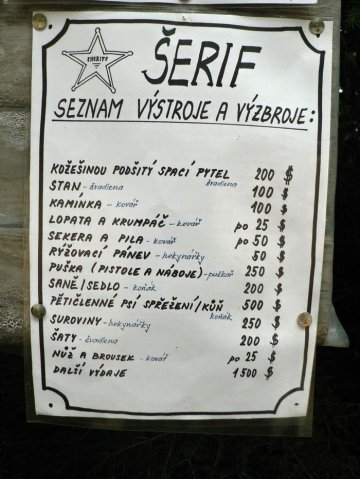 SHERIFF
ŠERIF
SEZNAM VÝSTROJE A VÝZBROJE:
KOŽEŠINOU PODŠITÝ SPACÍ PYTEL švadlena 200 $
STAN - švadlena 100 $
KAMÍNKA - kovář 100 $
LOPATA A KRUMPÁČ - kovář po 25 $
SEKERA A PILA - kovář po 50 $
RÝŽOVACÍ PÁNEV - hokynářky 50 $
PUŠKA (PISTOLE A NÁBOJE) - puškař 250 $
SANĚ/SEDLO - koňák 200 $
PĚTIČLENNÉ PSÍ SPŘEŽENÍ/KŮŇ koňák 500 $
SUROVINY - hokynářky 250 $
ŠATY - švadlena 200 $
NŮŽ A BROUSEK - kovář po 25 $
DALŠÍ VÝDAJE 1500 $